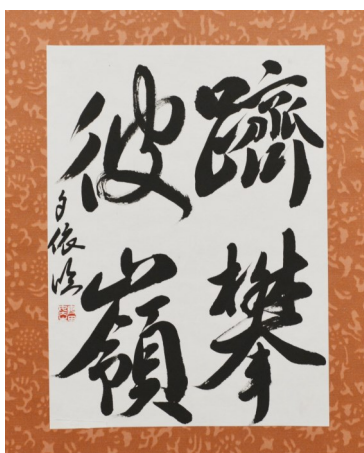 躋攀
彼嶺